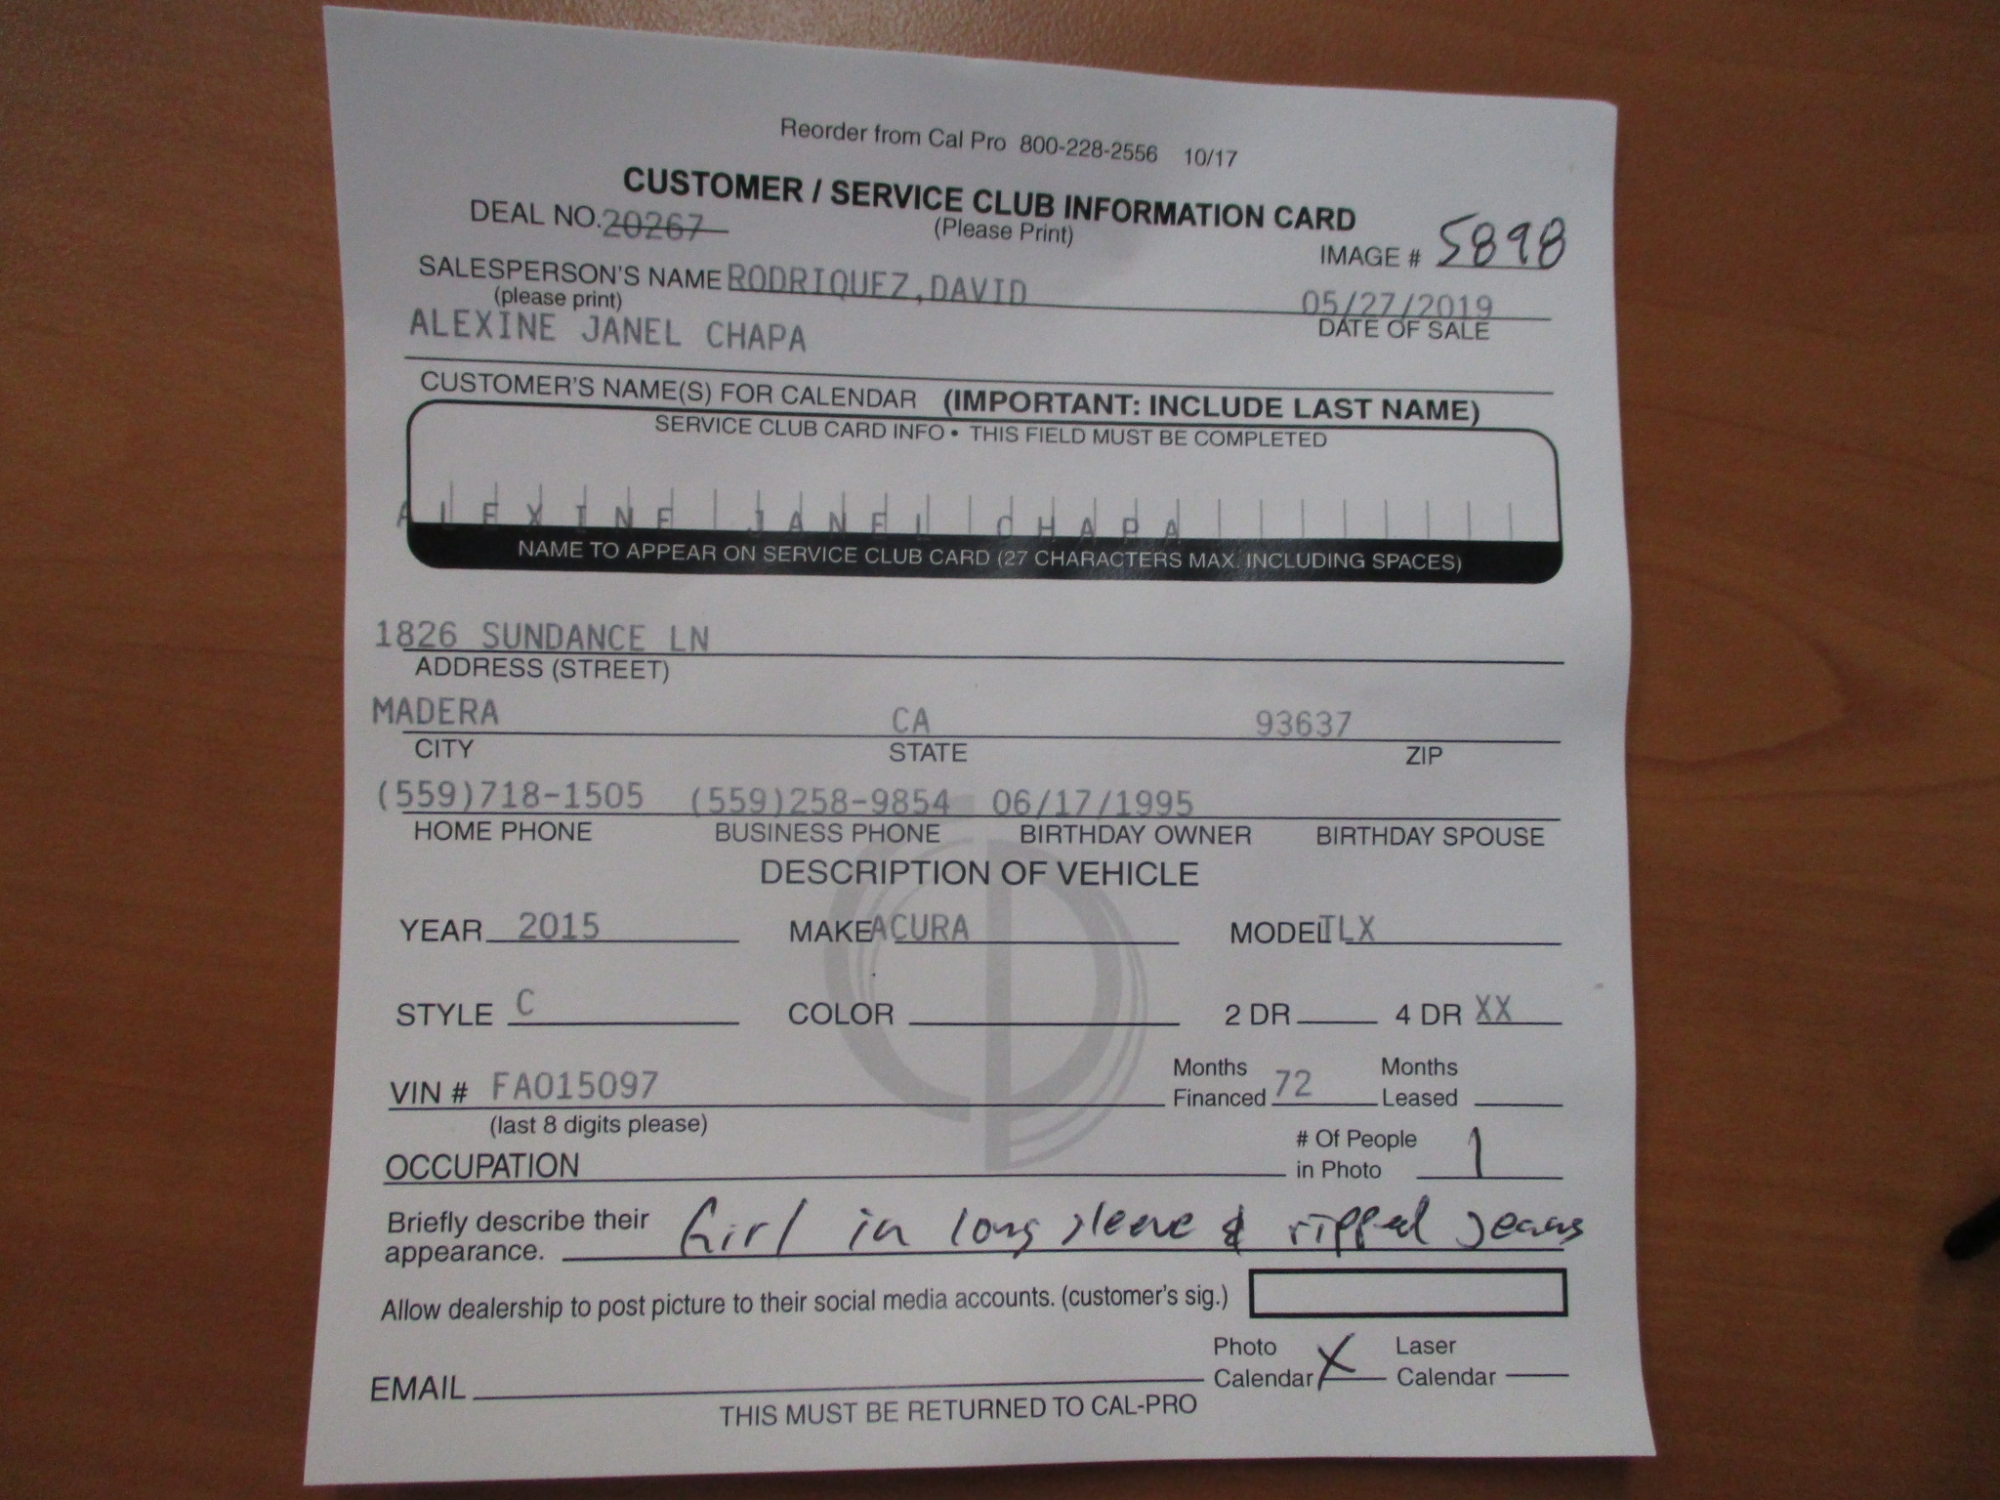 Reorder from Cal Pro 800-228-2556 10/17
CUSTOMER / SERVICE CLUB INFORMATION CARD
DEAL NO. 20267 (Please Print)
IMAGE # 5898
SALESPERSON'S NAME RODRIQUEZ,DAVID 05/27/2019
(please print) DATE OF SALE
ALEXINE JANEL CHAPA
CUSTOMER'S NAME(S) FOR CALENDAR (IMPORTANT: INCLUDE LAST NAME)
SERVICE CLUB CARD INFO • THIS FIELD MUST BE COMPLETED
ALEXINE JANEL CHAPA
NAME TO APPEAR ON SERVICE CLUB CARD (27 CHARACTERS MAX. INCLUDING SPACES)
1826 SUNDANCE LN
ADDRESS (STREET)
MADERA CA 93637
CITY STATE ZIP
(559)718-1505 (559)258-9854 06/17/1995
HOME PHONE BUSINESS PHONE BIRTHDAY OWNER BIRTHDAY SPOUSE
DESCRIPTION OF VEHICLE
YEAR 2015 MAKE ACURA MODEL TLX
STYLE C COLOR 2 DR 4 DR XX
VIN # FA015097 Months Financed 72 Months Leased
(last 8 digits please)
OCCUPATION # Of People in Photo 1
Briefly describe their appearance. Girl in long sleeve & ripped jeans
Allow dealership to post picture to their social media accounts. (customer's sig.)
EMAIL Photo Calendar X Laser Calendar
THIS MUST BE RETURNED TO CAL-PRO